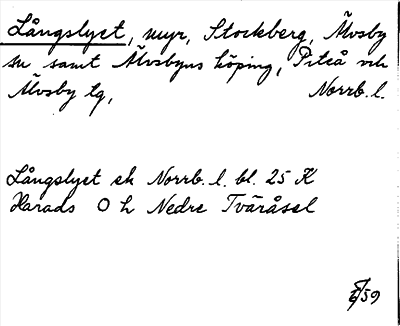 Långslyet, myr, Stockberg, Älvsby
sn samt Älvsbyns köping, Piteå och
Älvsby tg, Norrb. l.
Långslyet ek Norrb. l. bl. 25 K
Harads O h Nedre Tväråsel
/59